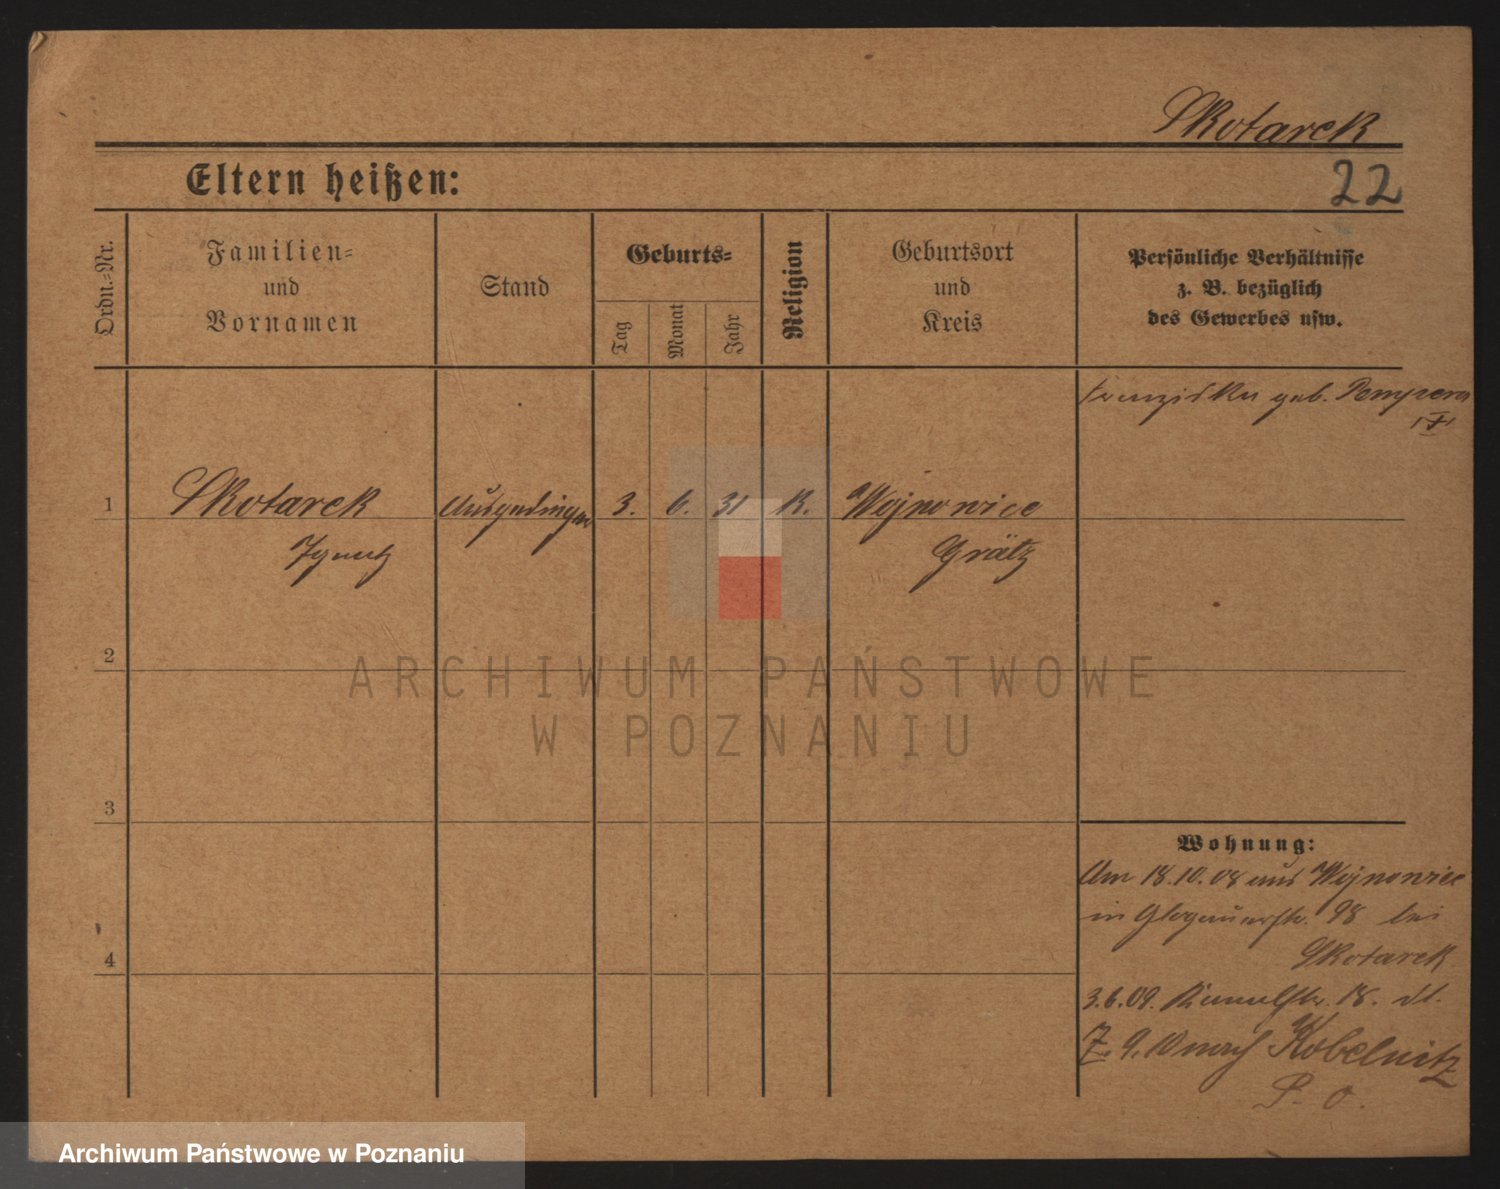 Skotarek
Eltern heißen:
22
Ordn.-Nr.
Familien-
und
Vornamen
Stand
Geburts-
Tag
Monat
Jahr
Religion
Geburtsort
und
Kreis
Persönliche Verhältnisse
z. B. bezüglich
des Gewerbes usw.
Franziska geb.
1
Skotarek
Ignatz
Ausgedinger
3.
6.
31
K.
Wojnowice
Grätz
2
ARCHIWUM PAŃSTWOWE
W POZNANIU
3
Wohnung:
Am 18.10.08 aus Wojnowice
in Glogauerstr. 98 bei
Skotarek
3.6.09. 18. dt.
7. 9. 10 nach Kobelnitz
P. O.
4
Archiwum Państwowe w Poznaniu